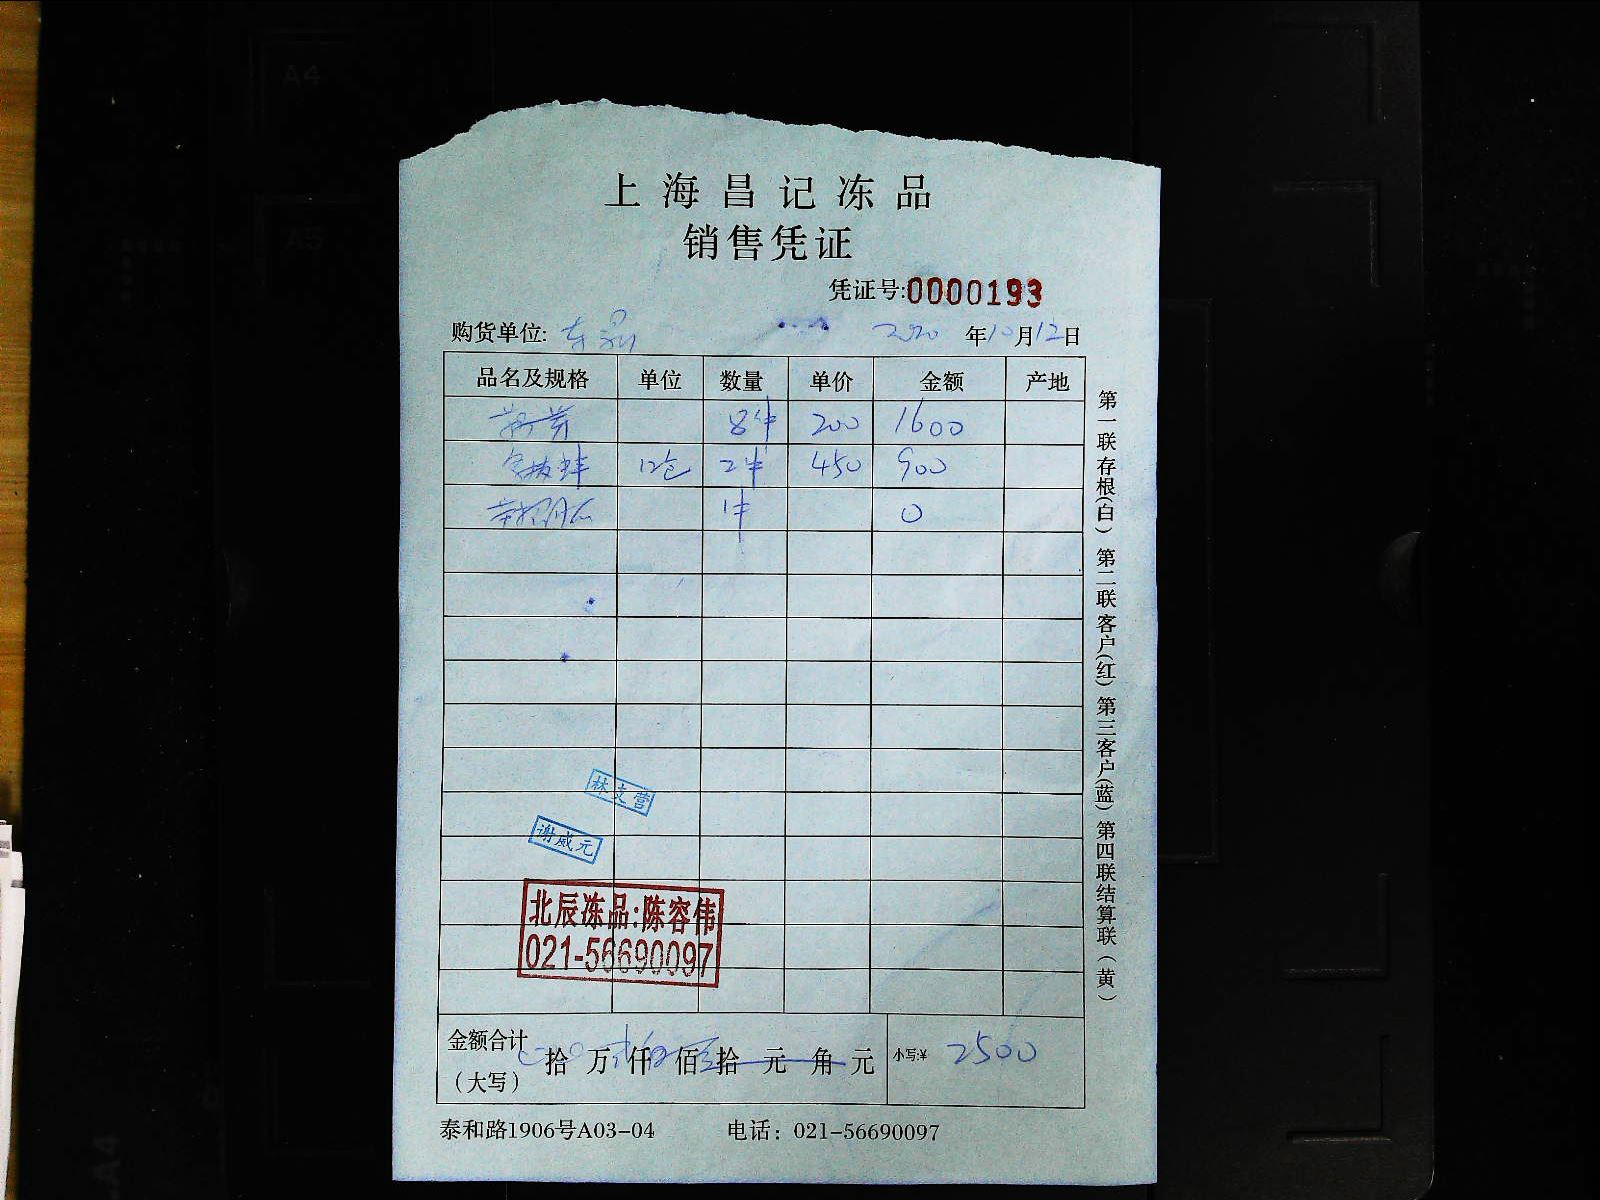 上海昌记冻品
销售凭证
凭证号:0000193
购货单位: 2020 年10月12日
品名及规格 单位 数量 单价 金额 产地
8件 200 1600
12包 2件 450 900
1件 0
林文营
谢威元
北辰冻品:陈容伟
021-56690097
金额合计 拾 万 仟 佰 拾 元 角 元 小写:¥ 2500
(大写)
泰和路1906号A03-04 电话: 021-56690097
第一联存根(白) 第二联客户(红) 第三客户(蓝) 第四联结算联(黄)
A4
A5
A4